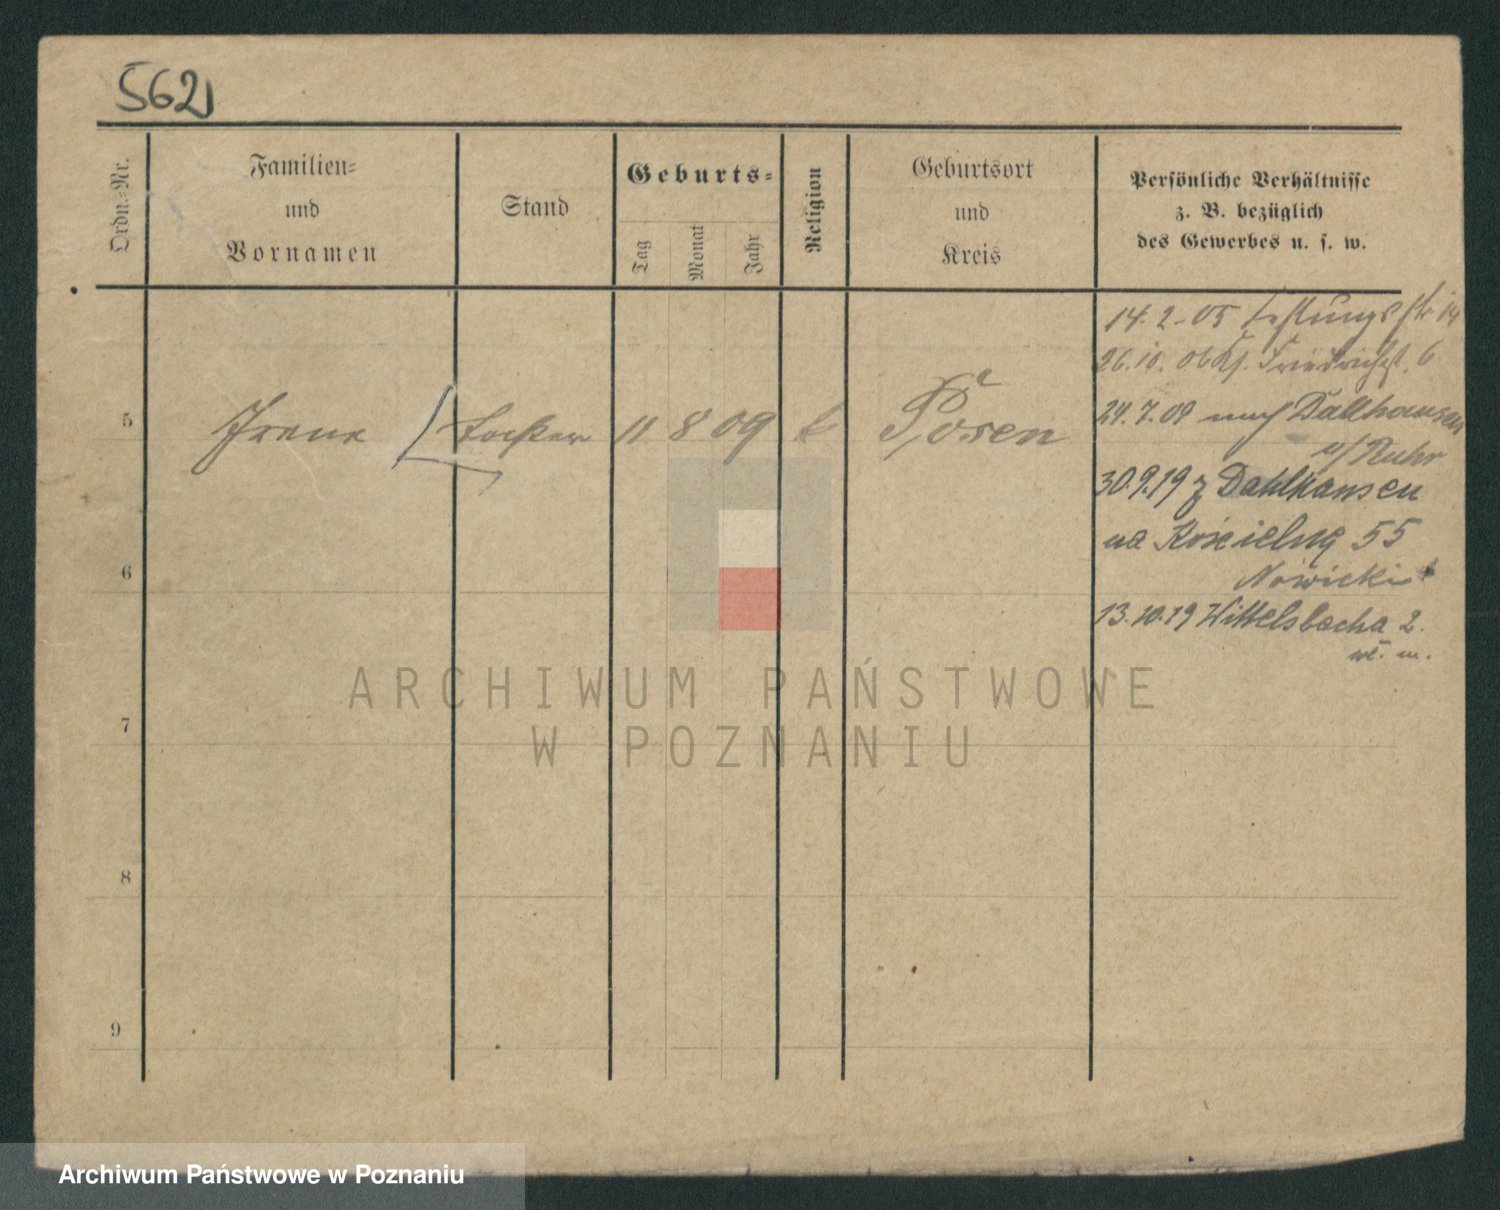 562
Ordn.-Nr.
Familien-
und
Vornamen
Stand
Geburts-
Tag
Monat
Jahr
Religion
Geburtsort
und
Kreis
Persönliche Verhältnisse
z. B. bezüglich
des Gewerbes u. s. w.
14.2.-05 Festungsstr 14
26.10. Friedrichst. 6
5 Irene Tochter 11 8 09 k Posen
24.7.09 nach Dahlhausen
a/Ruhr
30.9.19 z Dahlhausen
na 55
6
Nowicki
13.10.19 Wittelsbacha 2.
7
8
9
ARCHIWUM PAŃSTWOWE
W POZNANIU
Archiwum Państwowe w Poznaniu